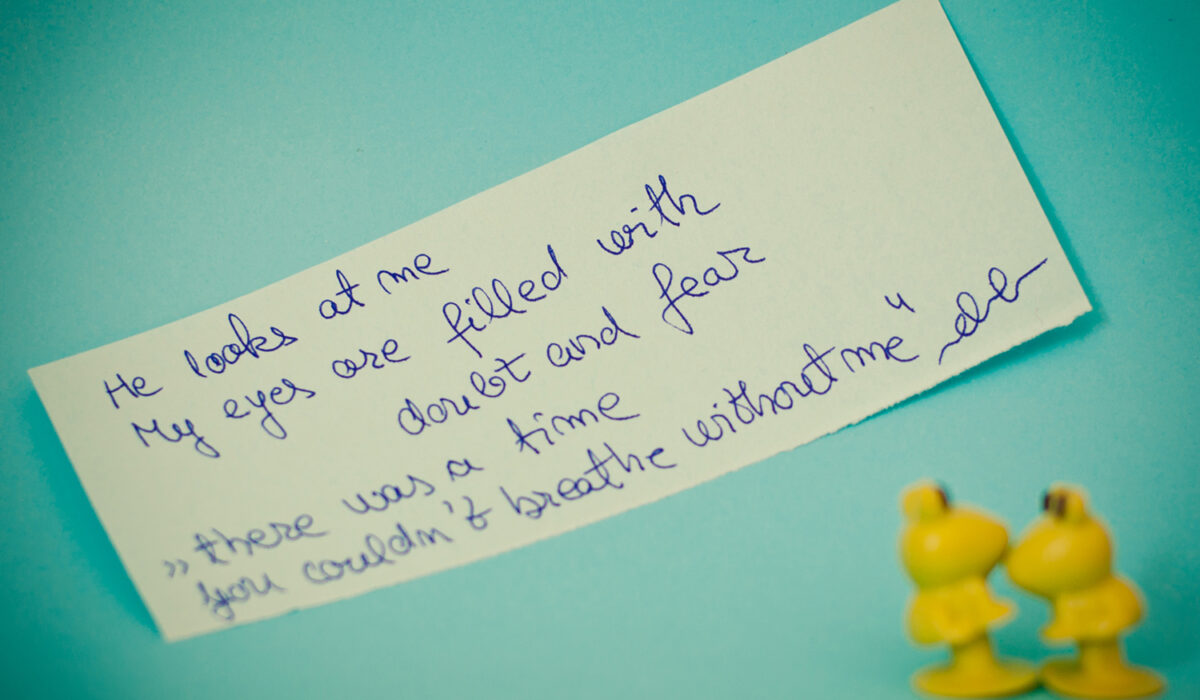 He looks at me
My eyes are filled with
doubt and fear
„there was a time
you couldn't breathe without me"